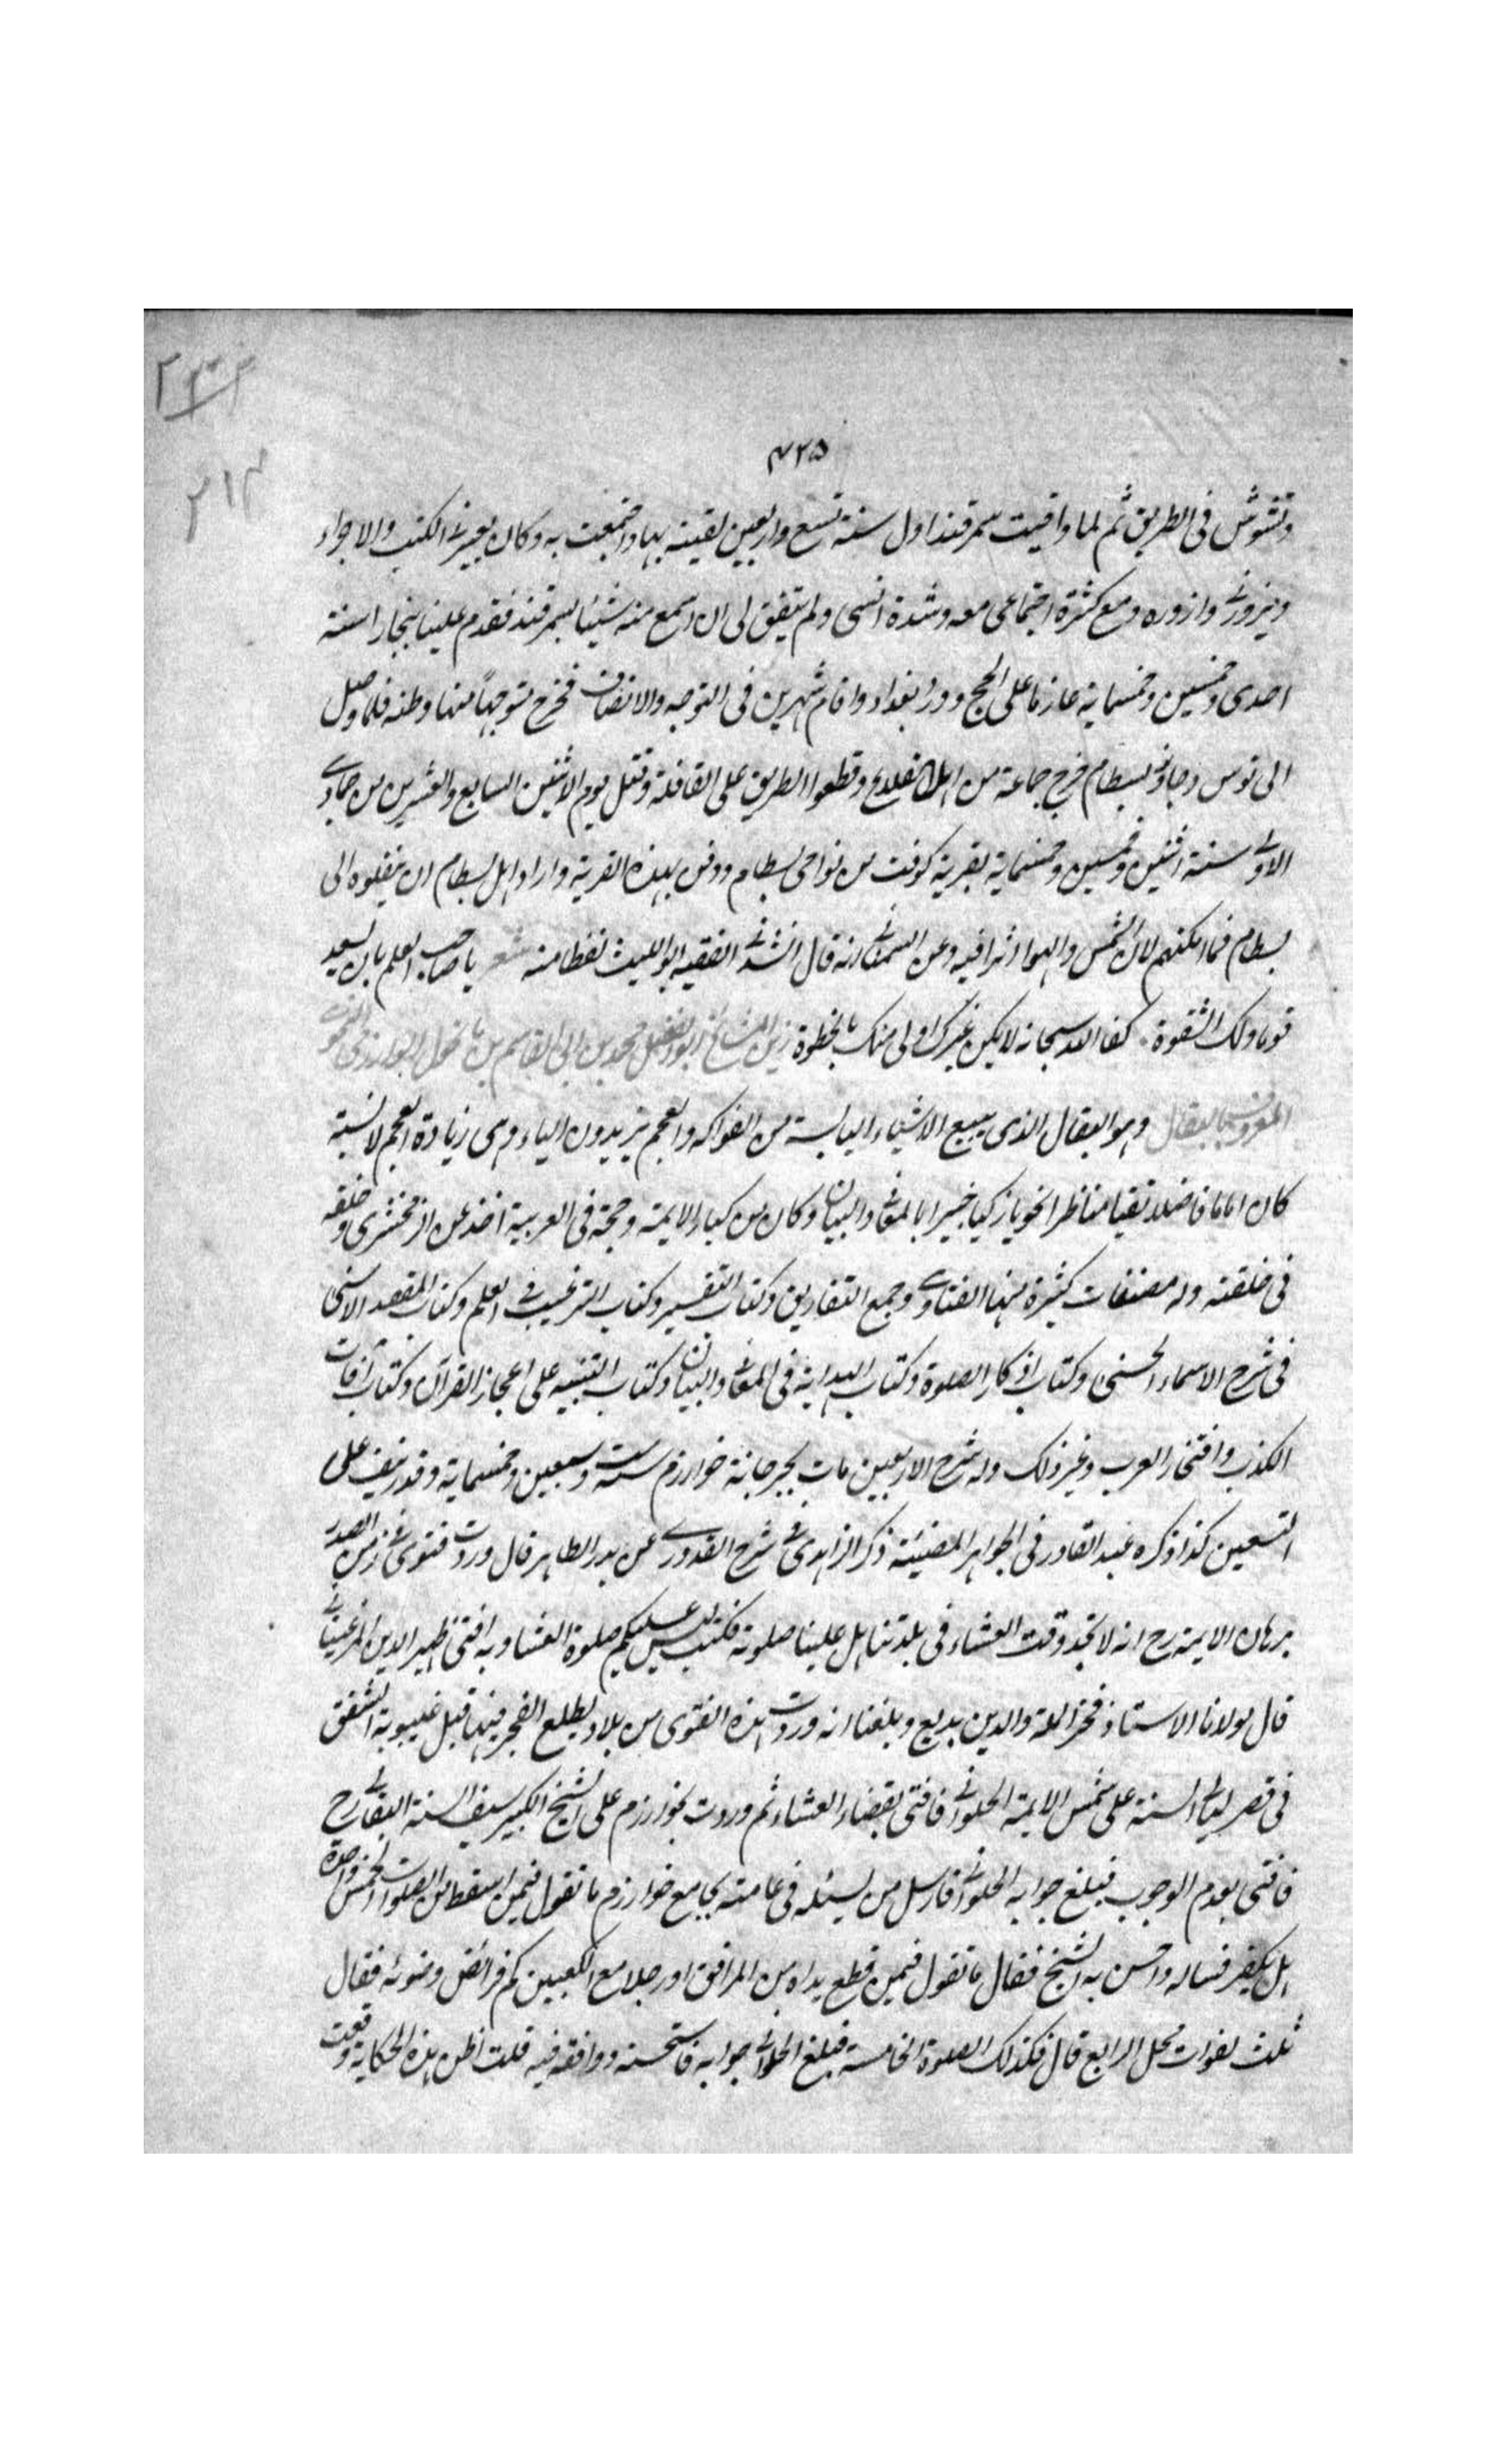 ٢١٤
٤٢٥
وتشوش فى الطريق ثم لما وافيت سمرقند اول سنة تسع واربعين لقيته بها واجتمعت به وكان يعيرنى الكتب والاجزاء
ويزورنى وازوره ومع كثرة اجتماعى معه وشدة انسى ولم يتفق لى ان اسمع منه شيئا بسمرقند فقدم علينا بخارا سنة
احدى وخمسين وخمسماية عازما على الحج وورد بغداد واقام شهرين فى التوجه والانصراف فخرج متوجها منها وطنه فلما وصل
الى قومس وجاوز بسطام خرج جماعة من اهل القلاع وقطعوا الطريق على القافلة وقتل يوم الاثنين السابع والعشرين من جمادى
الاولى سنة اثنين وخمسين وخمسماية بقرية كوفت من نواحى بسطام ودفن بهذه القرية واراد اهل بسطام ان ينقلوه الى
بسطام فما امكنهم لان الشمس والهوا اثرا فيه وعن السمعانى انه قال انشدنى الفقيه ابو الليث لفظا منه شعر يا صاحب العلم بان يسعد
قوما ولك الشقوة كفا الله سبحانه لا يكن غيرك اولى منك بالحظوة زين المشايخ ابو الفضل محمد بن ابى القاسم بن بايجول الخوارزمى النحوى
المعروف بالبقال وهو البقال الذى يبيع الاشياء اليابسة من الفواكه والعجم يزيدون الياء وهى زيادة العجم لا نسبة
كان اماما فاضلا تقيا مناظرا نحويا زكيا خبيرا بالمعانى والبيان وكان من كبار الايمة وحجة فى العربية اخذ عن الزمخشرى وخلفه
فى حلقته وله مصنفات كثيرة منها الفتاوى وجمع التفاريق وكتاب التفسير وكتاب الترغيب فى العلم وكتاب المقصد الاسنى
فى شرح الاسماء الحسنى وكتاب اذكار الصلوة وكتاب الهداية فى المعانى والبيان وكتاب التنبيه على اعجاز القرآن وكتاب آفات
الكذب وافتخار العرب وغير ذلك وله شرح الاربعين مات بجرجانية خوارزم ست وسبعين وخمسماية وقد نيف على
التسعين كذا ذكره عبد القادر فى الجواهر المضيئة ذكر الزاهدى فى شرح القدورى عن بدر الطاهر قال وردت فتوى فى زمن الصدر
برهان الايمة رح انه لا نجد وقت العشاء فى بلدتنا هل علينا صلوته فكتب ليس عليكم صلوة العشا وبه افتى ظهير الدين المرغينانى
قال مولانا الاستاذ فخر الملة والدين بديع وبلغنا انه وردت هذه الفتوى من بلاد يطلع الفجر فيها قبل غيبوبة الشفق
فى قصر ليالى السنة على شمس الايمة الحلوانى فافتى بقضاء العشاء ثم وردت بخوارزم على الشيخ الكبير سيف السنة البقالى رح
فافتى بعدم الوجوب فبلغ جوابه الحلوانى فارسل من يسئله فى عامته بجامع خوارزم ما تقول فيمن اسقط من الصلوات الخمس واحدة
هل يكفر فساله واحس به الشيخ فقال ما تقول فيمن قطع يداه من المرافق او رجلا مع الكعبين كم فرائض وضوئه فقال
ثلث لفوات محل الرابع قال فكذلك الصلوة الخامسة فبلغ الحلوانى جوابه فاستحسنه ووافقه فيه قلت اظن هذه الحكاية وقعت